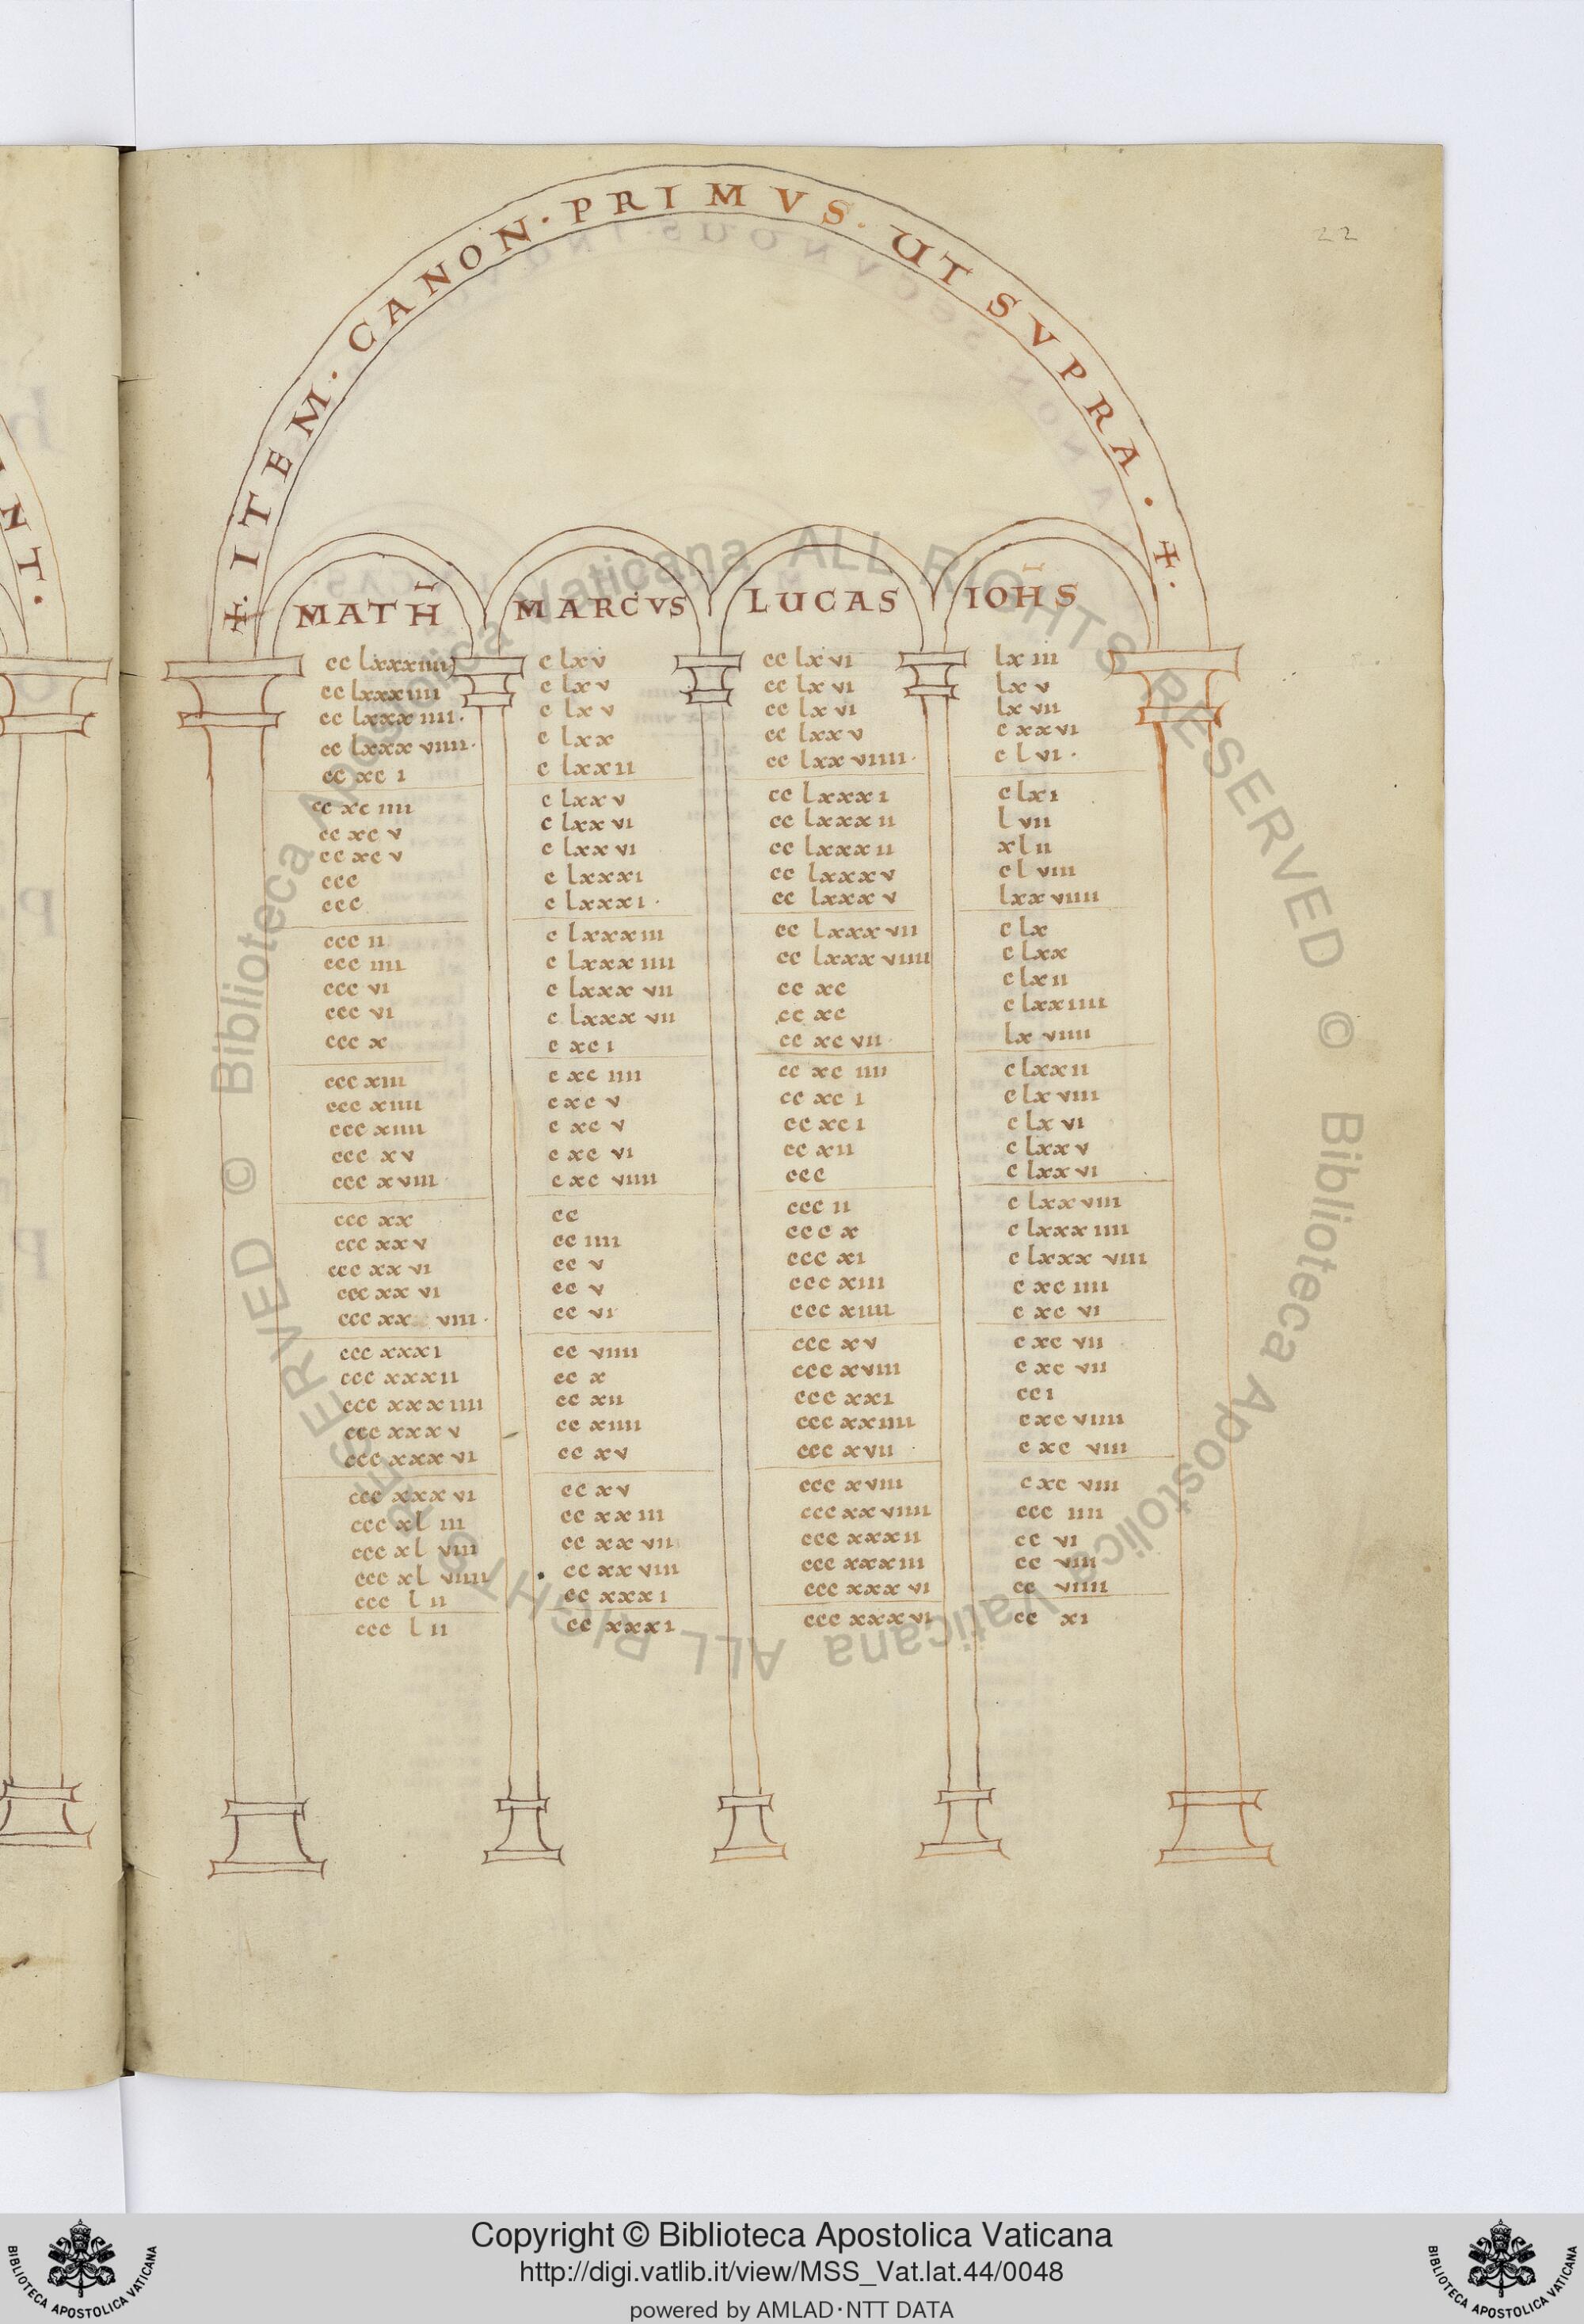 +· ITEM · CANON · PRIMVS · UT SVPRA · +·
22
MATH̄ MARCVS LUCAS IOH̄S
cc lxxxiiii c lxv cc lxvi lx iii
cc lxxxiiii c lxv cc lxvi lx v
cc lxxxiiii· c lxv cc lxvi lx vii
cc lxxxviiii· c lxx cc lxxv c xxvi
cc xc i c lxxii cc lxxviiii· c lvi·
cc xc iiii c lxxv cc lxxxi c lxi
cc xc v c lxxvi cc lxxxii l vii
cc xc v c lxxvi cc lxxxii xl ii
ccc c lxxxi cc lxxxv c l viii
ccc c lxxxi· cc lxxxv lxx viiii
ccc ii c lxxxiii cc lxxxvii c lx
ccc iiii c lxxxiiii cc lxxxviiii c lxx
ccc vi c lxxxvii cc xc c lxii
ccc vi c lxxxvii cc xc c lxxiiii
ccc x c xc i cc xc vii lx viiii
ccc xiii c xc iiii cc xc iiii c lxxii
ccc xiiii c xc v cc xc i c lxviii
ccc xiiii c xc v cc xc i c lx vi
ccc xv c xc vi cc xii c lxxv
ccc xviii c xc viiii ccc c lxxvi
ccc xx cc ccc ii c lxxviii
ccc xxv cc iiii ccc x c lxxxiiii
ccc xxvi cc v ccc xi c lxxxviii
ccc xxvi cc v ccc xiii c xc iiii
ccc xx viii· cc vi ccc xiiii c xc vi
ccc xxxi cc viiii ccc xv c xc vii
ccc xxxii cc x ccc xviii c xc vii
ccc xxxiiii cc xii ccc xxi cc i
ccc xxxv cc xiiii ccc xxiiii c xc viiii
ccc xxxvi cc xv ccc xvii c xc viii
ccc xxxvi cc xv ccc xviii c xc viii
ccc xl iii cc xxiii ccc xxviiii ccc iiii
ccc xl viii cc xxvii ccc xxxii cc vi
ccc xl viiii cc xxviii ccc xxxiii cc viii
ccc l ii cc xxxi ccc xxxvi cc viiii
ccc l ii cc xxxi ccc xxxvi cc xi
© Biblioteca Apostolica Vaticana ALL RIGHTS RESERVED © Biblioteca Apostolica Vaticana ALL RIGHTS RESERVED
Copyright © Biblioteca Apostolica Vaticana
http://digi.vatlib.it/view/MSS_Vat.lat.44/0048
powered by AMLAD·NTT DATA
BIBLIOTECA APOSTOLICA VATICANA
BIBLIOTECA APOSTOLICA VATICANA